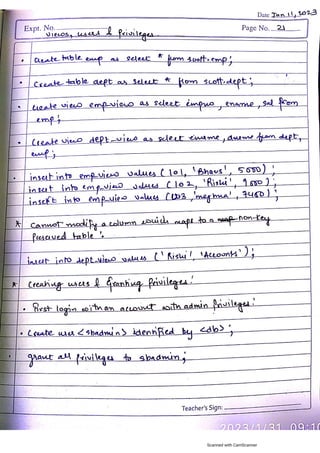 Date Jan 11, 2023
Expt. No.
Views, users & Privileges.
Page No. 21
create table emp as select * from scott.emp;
Create table dept as select * from scott.dept;
create view empview as select empno, ename, sal from
emp;
Create view dept_view as select ename, dname from dept,
emp;
insert into emp_view values (101, 'Bhavs', 5000);
insert into emp_view values (102, 'Rishi', 9000);
insert into emp_view values (103, 'meghna', 7460);
* Cannot modify a column which maps to a non-key
Preserved table'.
insert into dept_view values ('Rishi', 'Accounts');
* Creating users & Granting Privileges:
First login with an account with admin privileges:
Create user <sbadmin> identified by <db>;
grant all privileges to sbadmin;
Teacher's Sign:
2023/1/31 09:10
Scanned with CamScanner